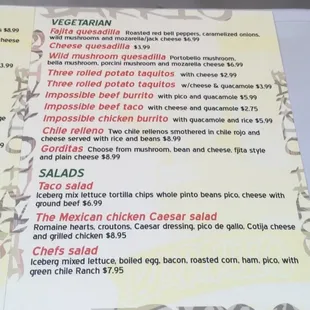 $8.99
VEGETARIAN
Fajita quesadilla Roasted red bell peppers, caramelized onions,
cheese
wild mushrooms and mozarella/jack cheese $6.99
Cheese quesadilla $3.99
Wild mushroom quesadilla Portobello mushroom,
3.99
bella mushroom, porcini mushroom and mozarella cheese $6.99
Three rolled potato taquitos with cheese $2.99
Three rolled potato taquitos w/cheese & guacamole $3.99
Impossible beef burrito with pico and guacamole $5.99
Impossible beef taco with guacamole and cheese $2.75
Impossible chicken burrito with guacamole and rice $5.99
Chile relleno Two chile rellenos smothered in chile rojo and
cheese served with rice and beans $8.99
Gorditas Choose from mushroom, bean and cheese, fjita style
and plain cheese $8.99
SALADS
Taco salad
Iceberg mix lettuce tortilla chips whole pinto beans pico, cheese with
ground beef $6.99
The Mexican chicken Caesar salad
Romaine hearts, croutons, Caesar dressing, pico de gallo, Cotija cheese
and grilled chicken $8.95
Chefs salad
Iceberg mixed lettuce, boiled egg, bacon, roasted corn, ham, pico, with
green chile Ranch $7.95